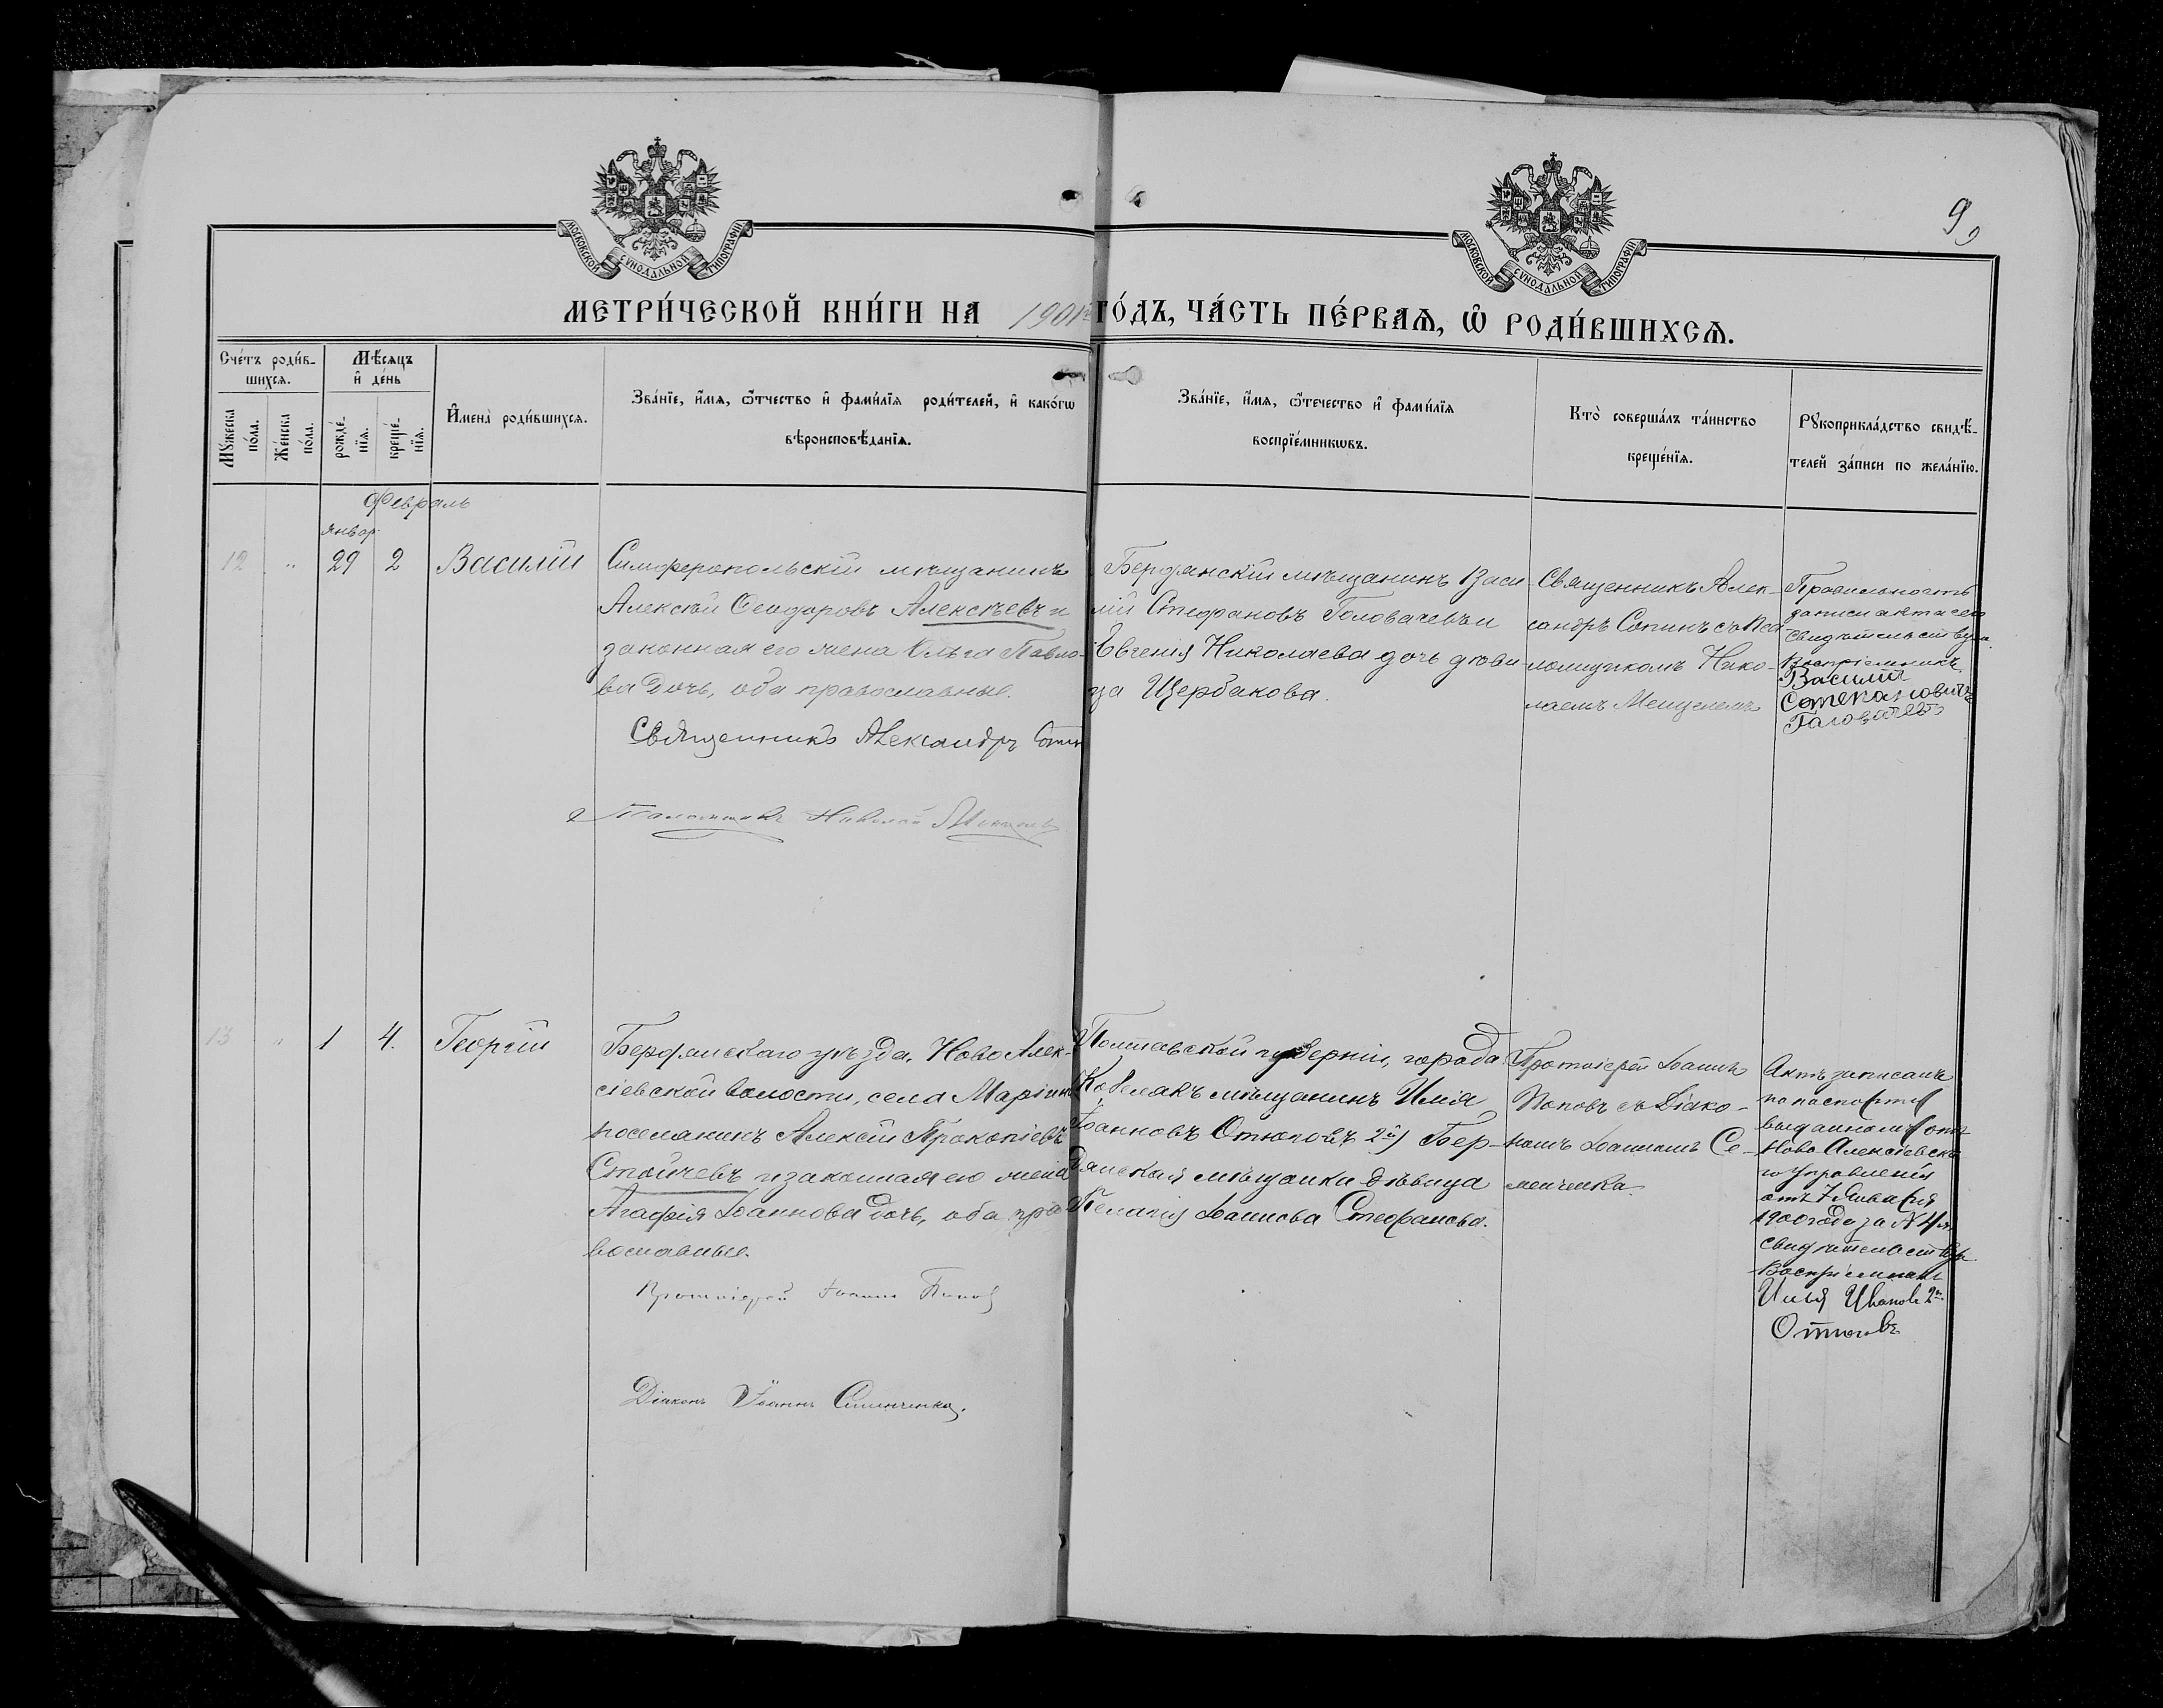 МОСКОВСКОЙ СУНОДАЛЬНОЙ ТИПОГРАФІИ
МОСКОВСКОЙ СУНОДАЛЬНОЙ ТИПОГРАФІИ
9
МЕТРИ́ЧЕСКОЙ КНИ́ГИ НА 1901й ГО́ДЪ, ЧА́СТЬ ПЕ́РВАѦ, Ѡ҆ РОДИ́ВШИХСѦ.
Сче́тъ роди́в-
шихсѧ.
Мꙋ́жеска по́ла.
Же́нска по́ла.
Мѣ́сяцъ
и҆ де́нь
рожде́-
нїѧ.
креще́-
нїѧ.
И҆мена̀ роди́вшихсѧ.
Зва́нїе, и҆́мѧ, ѻ҆́тчество и҆ фами́лїѧ роди́телей, и҆ како́гѡ
вѣроисповѣ́данїѧ.
Зва́нїе, и҆́мѧ, ѻ҆́течество и҆ фами́лїѧ
воспрїе́мникѡвъ.
Кто̀ соверша́лъ та́инство
креще́нїѧ.
Рꙋкоприкла́дство свидѣ́-
телей за́писи по жела́нїю.
Февраль
Январ.
12 " 29 2 Василій
Симферопольскій мѣщанинъ
Алексѣй Ѳеодоровъ Алексѣевъ и
законная его жена Ольга Павло-
ва дочь, оба православные.
Священникъ Александръ Сопин
Псаломщикъ Николай
Бердянскій мѣщанинъ Васи
лій Стефановъ Головачевъ и
Евгенія Николаева дочь дѣви-
ца Щербакова.
Священникъ Алек-
сандръ Сопинъ съ Пса
ломщикомъ Нико-
лаемъ
Правильность
записи акта сего
свидѣтельствую
Воспріемникъ
Василий
Стеканович
Головачевъ
13 " 1 4. Георгій
Бердянскаго уѣзда, Ново Алек-
сіевской волости, села Маріин
поселянинъ Алексій Прокопіевъ
Стойчевъ и законная его жена
Агафія Іоаннова дочь, оба пра
вославные.
Протоіерей Іоаннъ Попов
Діаконъ Іоаннъ Семенченко.
Полтавской губерніи, города
Кобелякъ мѣщанинъ Илія
Іоанновъ Отюговъ 2й) Бер-
дянская мѣщанка дѣвица
Пелагія Іоаннова Стефанова.
Протоіерей Іоаннъ
Поповъ съ Діако-
номъ Іоанномъ Се-
менченко.
Актъ записанъ
по паспорту
выданному отъ
Ново Алексіевска
го Управленія
отъ 7 Января
1900 года за N 4
свидѣтельствую
Воспріемникъ
Илья Иванов 2й